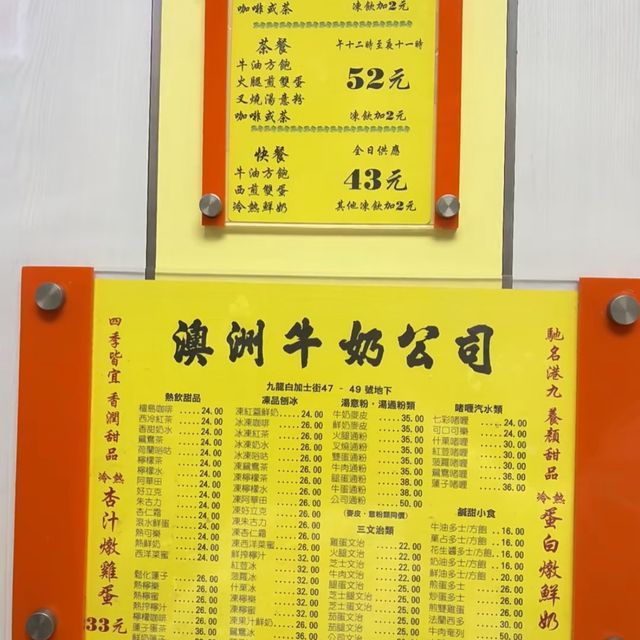 咖啡或茶 凍飲加2元
茶餐 午十二時至夜十一時
牛油方飽
火腿煎雙蛋 52元
叉燒湯意粉
咖啡或茶 凍飲加2元
快餐 全日供應
牛油方飽
西煎雙蛋 43元
冷熱鮮奶 其他凍飲加2元
澳洲牛奶公司
九龍白加士街47 - 49 號地下
四季皆宜 香潤甜品
冷熱 杏汁燉雞蛋
33元
馳名港九 養顏甜品
冷熱 蛋白燉鮮奶
熱飲甜品
檀島咖啡 ..... 24.00
西冷紅茶 ..... 24.00
香甜奶水 ..... 24.00
鴛鴦茶 ..... 24.00
荷蘭咕咕 ..... 24.00
檸檬茶 ..... 24.00
檸檬水 ..... 24.00
阿華田 ..... 24.00
好立克 ..... 24.00
朱古力 ..... 24.00
杏仁霜 ..... 24.00
滾水鮮蛋 ..... 24.00
熱可樂 ..... 24.00
熱鮮奶 ..... 24.00
西洋菜蜜 ..... 24.00
鬆化蓮子 ..... 26.00
熱檸樂 ..... 26.00
熱檸蜜 ..... 26.00
熱檸檸汁 ..... 26.00
檸檬咖啡 ..... 26.00
蓮子蛋茶 ..... 26.00
凍品刨冰
凍紅蓋鮮奶 .... 24.00
冰凍咖啡 ..... 26.00
冰凍紅茶 ..... 26.00
冰凍奶水 ..... 26.00
冰凍咕咕 ..... 26.00
凍鴛鴦茶 ..... 26.00
凍檸檬茶 ..... 26.00
凍檸檬水 ..... 26.00
凍阿華田 ..... 26.00
凍好立克 ..... 26.00
凍朱古力 ..... 26.00
凍杏仁霜 ..... 26.00
凍西洋菜蜜 ..... 26.00
鮮搾檸汁 ..... 32.00
紅荳冰 ..... 32.00
菠蘿冰 ..... 32.00
什果冰 ..... 32.00
凍檸樂 ..... 32.00
凍檸蜜 ..... 32.00
凍果汁鮮奶 ..... 36.00
鴛鴦冰 ..... 36.00
湯意粉·湯通粉類
牛奶麥皮 ..... 35.00
鮮奶麥皮 ..... 35.00
火腿通粉 ..... 35.00
叉燒通粉 ..... 38.00
雙蛋通粉 ..... 38.00
牛肉通粉 ..... 38.00
腿蛋通粉 ..... 38.00
牛蛋通粉 ..... 38.00
公司通粉 ..... 50.00
(麥皮、意粉類同價)
三文治類
雞蛋文治 ..... 22.00
火腿文治 ..... 22.00
芝士文治 ..... 22.00
牛肉文治 ..... 22.00
腿蛋文治 ..... 25.00
芝士腿文治 ..... 25.00
芝士蛋文治 ..... 25.00
茄蛋文治 ..... 25.00
茄腿文治 ..... 25.00
啫喱汽水類
七彩啫喱 ..... 24.00
可口可樂 ..... 24.00
什菓啫喱 ..... 30.00
紅荳啫喱 ..... 30.00
菠蘿啫喱 ..... 30.00
鴛鴦啫喱 ..... 36.00
蓮子啫喱 ..... 36.00
鹹甜小食
牛油多士/方飽 .. 16.00
菓占多士/方飽 .. 16.00
花生醬多士/方飽 .. 16.00
奶油多士/方飽 .. 16.00
奶油多士/方飽 .. 20.00
煎蛋多士 ..... 26.00
炒蛋多士 ..... 26.00
煎雙雞蛋 ..... 26.00
法蘭西多 ..... 30.00